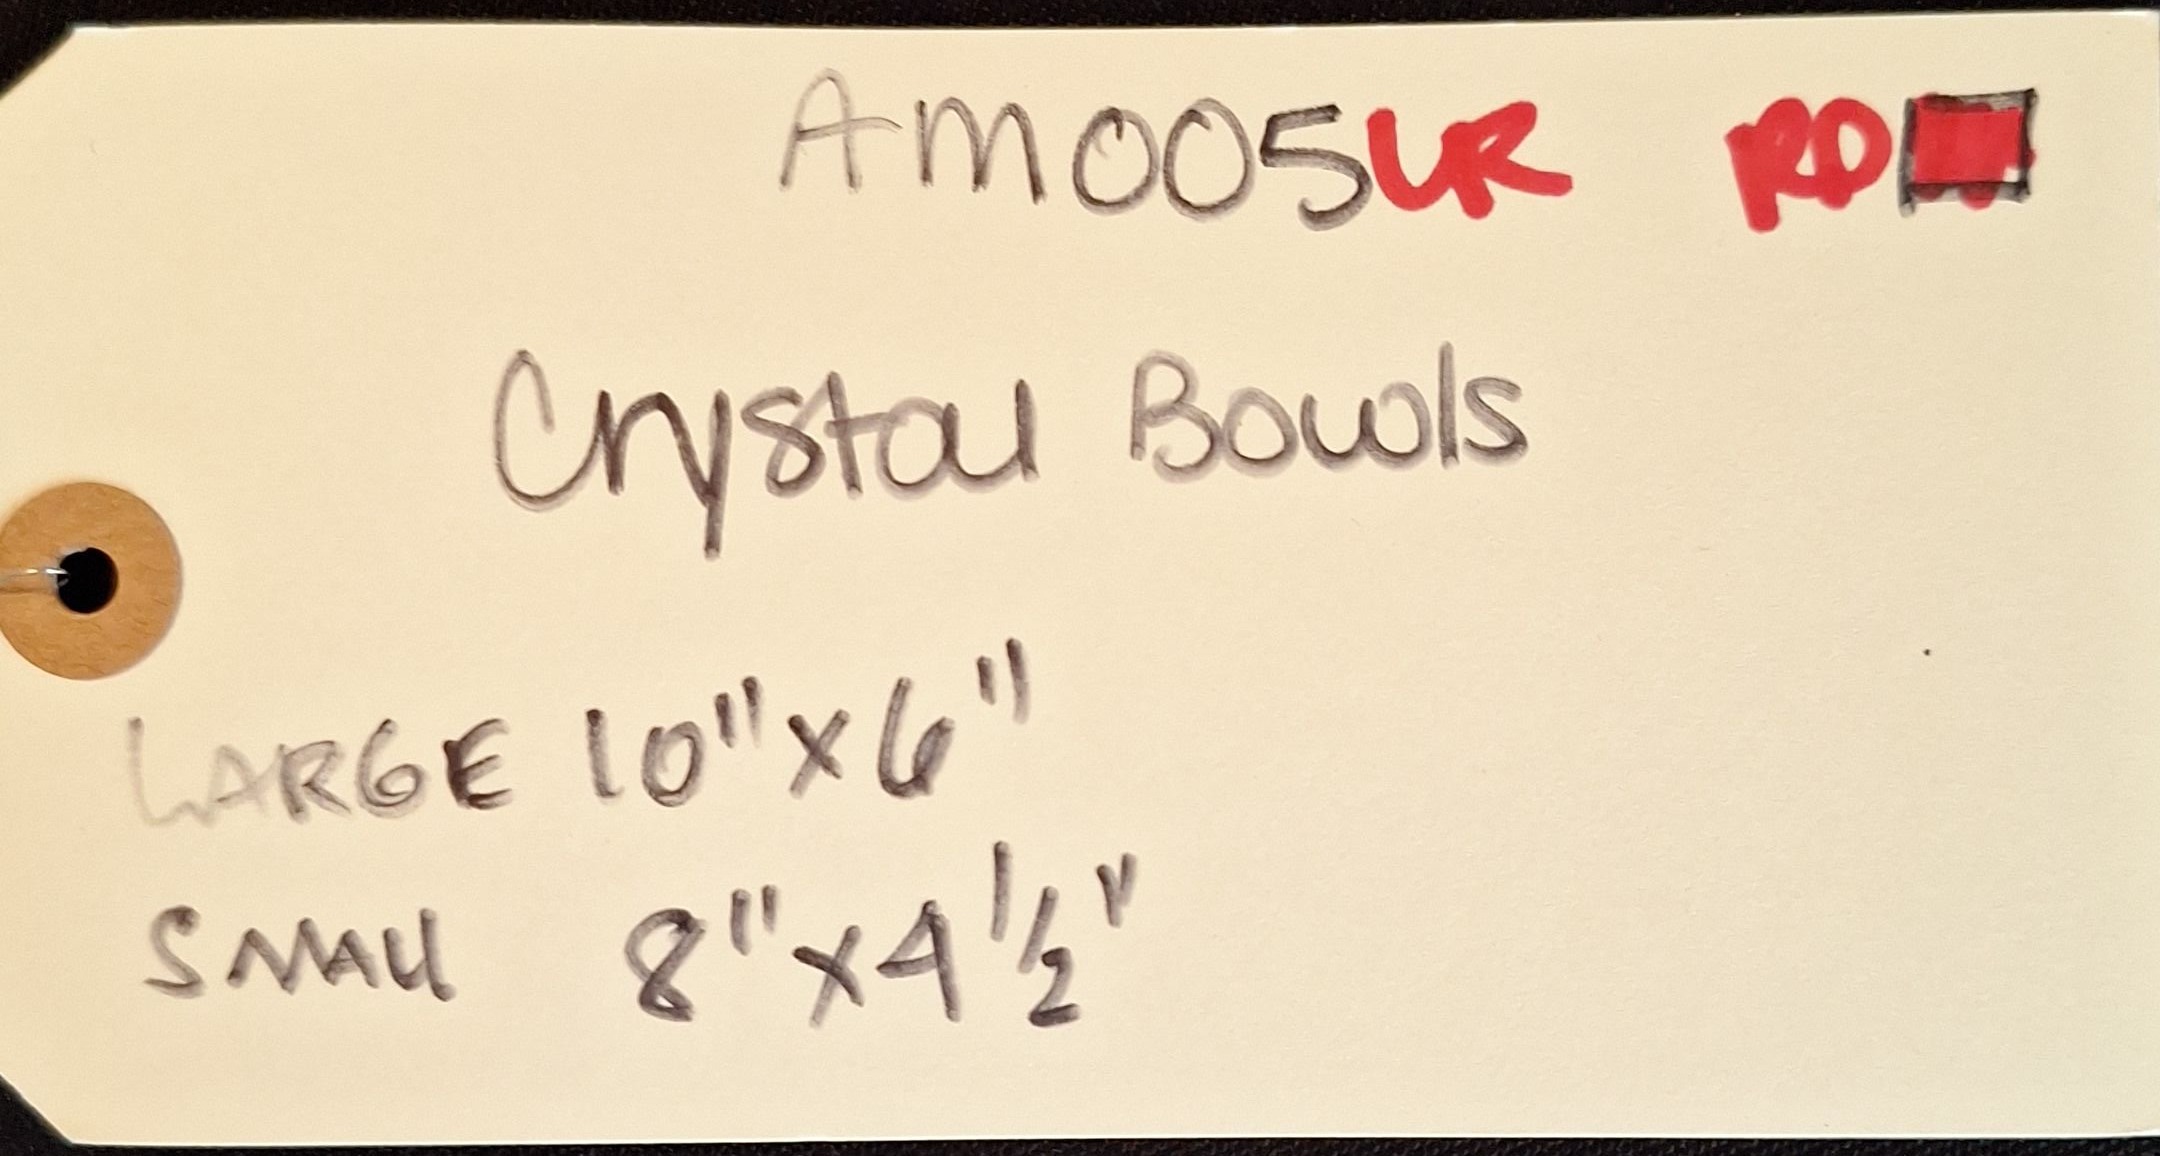 AM005LR RD
Crystal Bowls
LARGE 10"x6"
SMALL 8"x4 1/2"